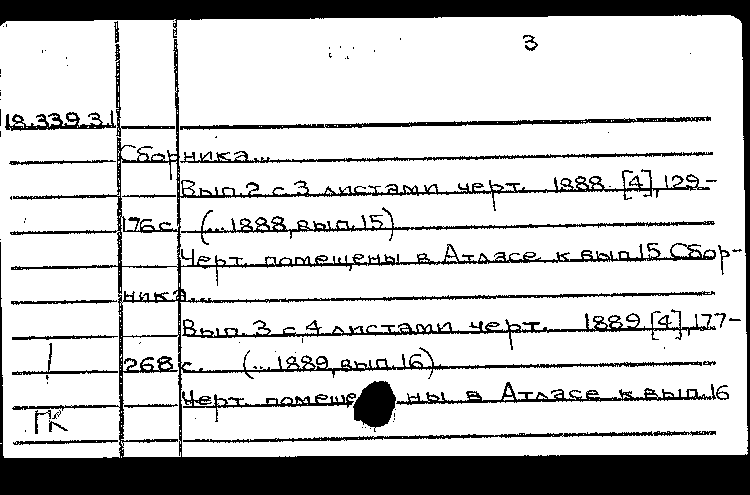 3
18.339.3.1
Сборника...
Вып.2 с 3 листами черт. 1888. [4],129-
176с. (...1888,вып.15)
Черт. помещены в Атласе к вып.15 Сбор-
ника...
Вып.3 с 4 листами черт. 1889 [4],177-
268 с. (...1889,вып.16)
Черт. помещены в Атласе к вып.16
ГК